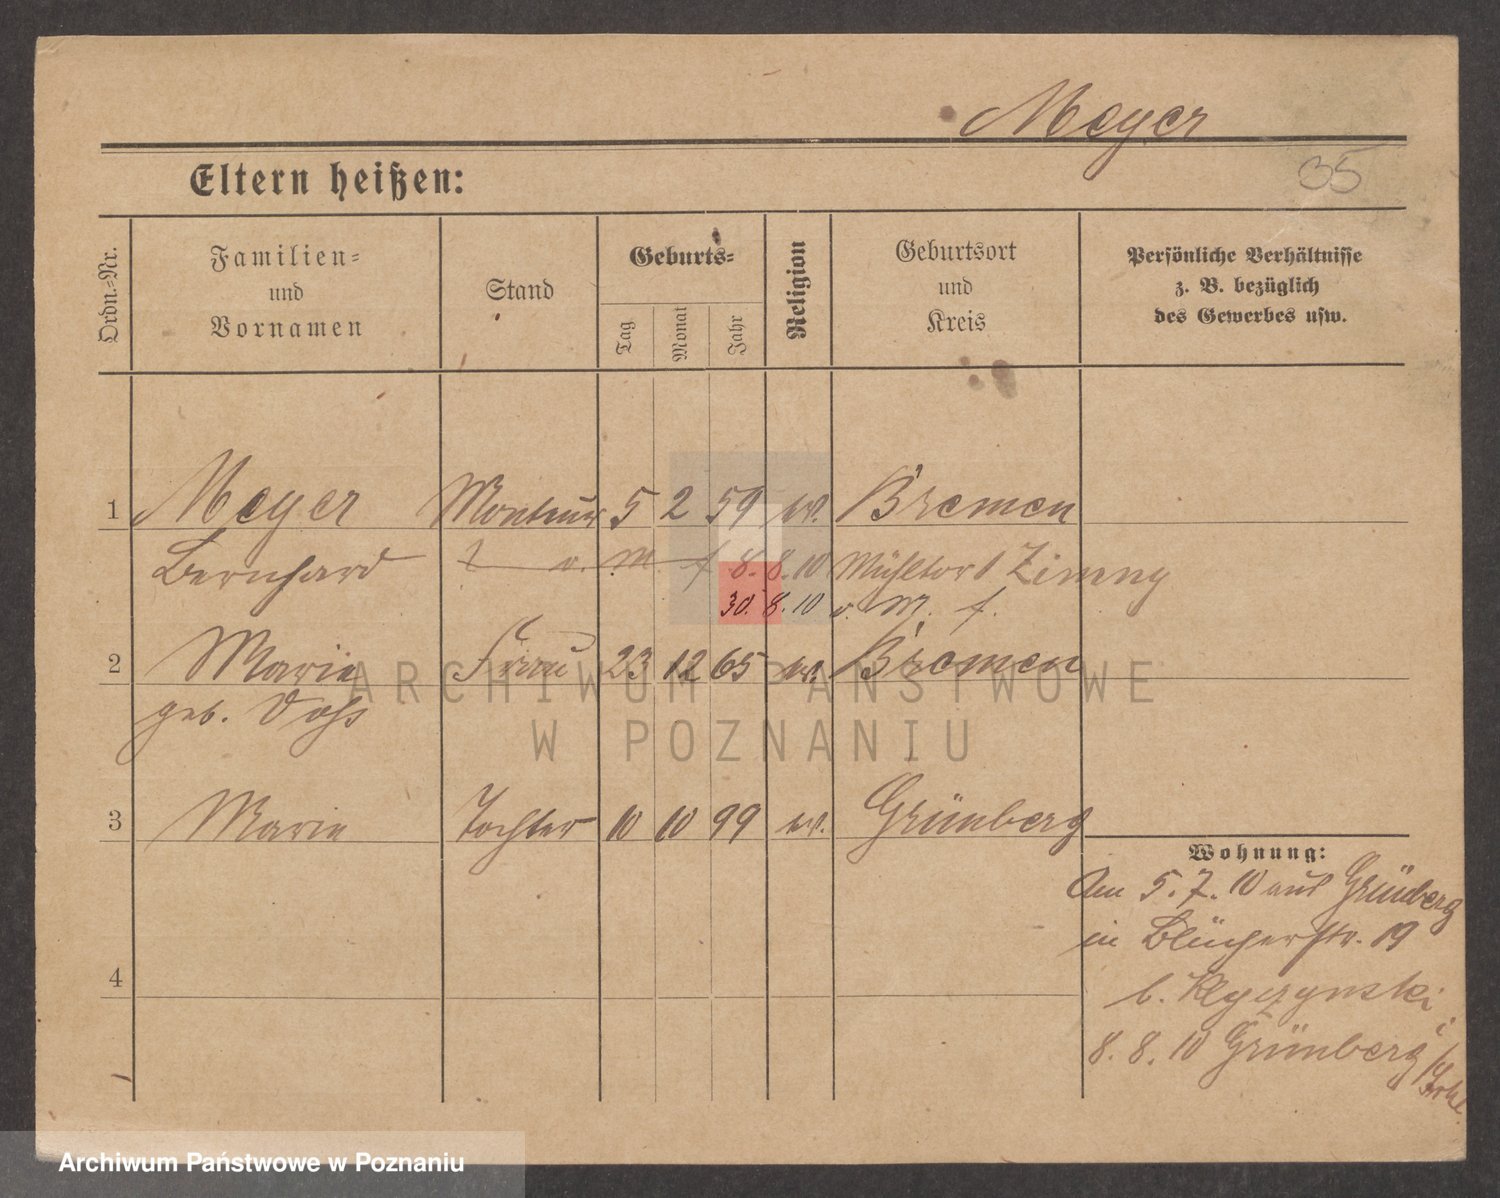 Meyer
35
Eltern heißen:
Ordn.-Nr.
Familien-
und
Vornamen
Stand
Geburts-
Tag
Monat
Jahr
Religion
Geburtsort
und
Kreis
Persönliche Verhältnisse
z. B. bezüglich
des Gewerbes usw.
1 Meyer Monteur 5 2 59 ev. Bremen
Bernhard 2 v. M f 8. 8. 10 Mühltor Zimny
30. 8. 10 v. M. f.
2 Marie Frau 23 12 65 ev. Bremen
geb. Voß
3 Marie Tochter 10 10 99 ev. Grünberg
4
Wohnung:
Am 5. 7. 10 aus Grünberg
in Blücherstr. 19
b.
8. 8. 10 Grünberg
ARCHIWUM PAŃSTWOWE
W POZNANIU
Archiwum Państwowe w Poznaniu